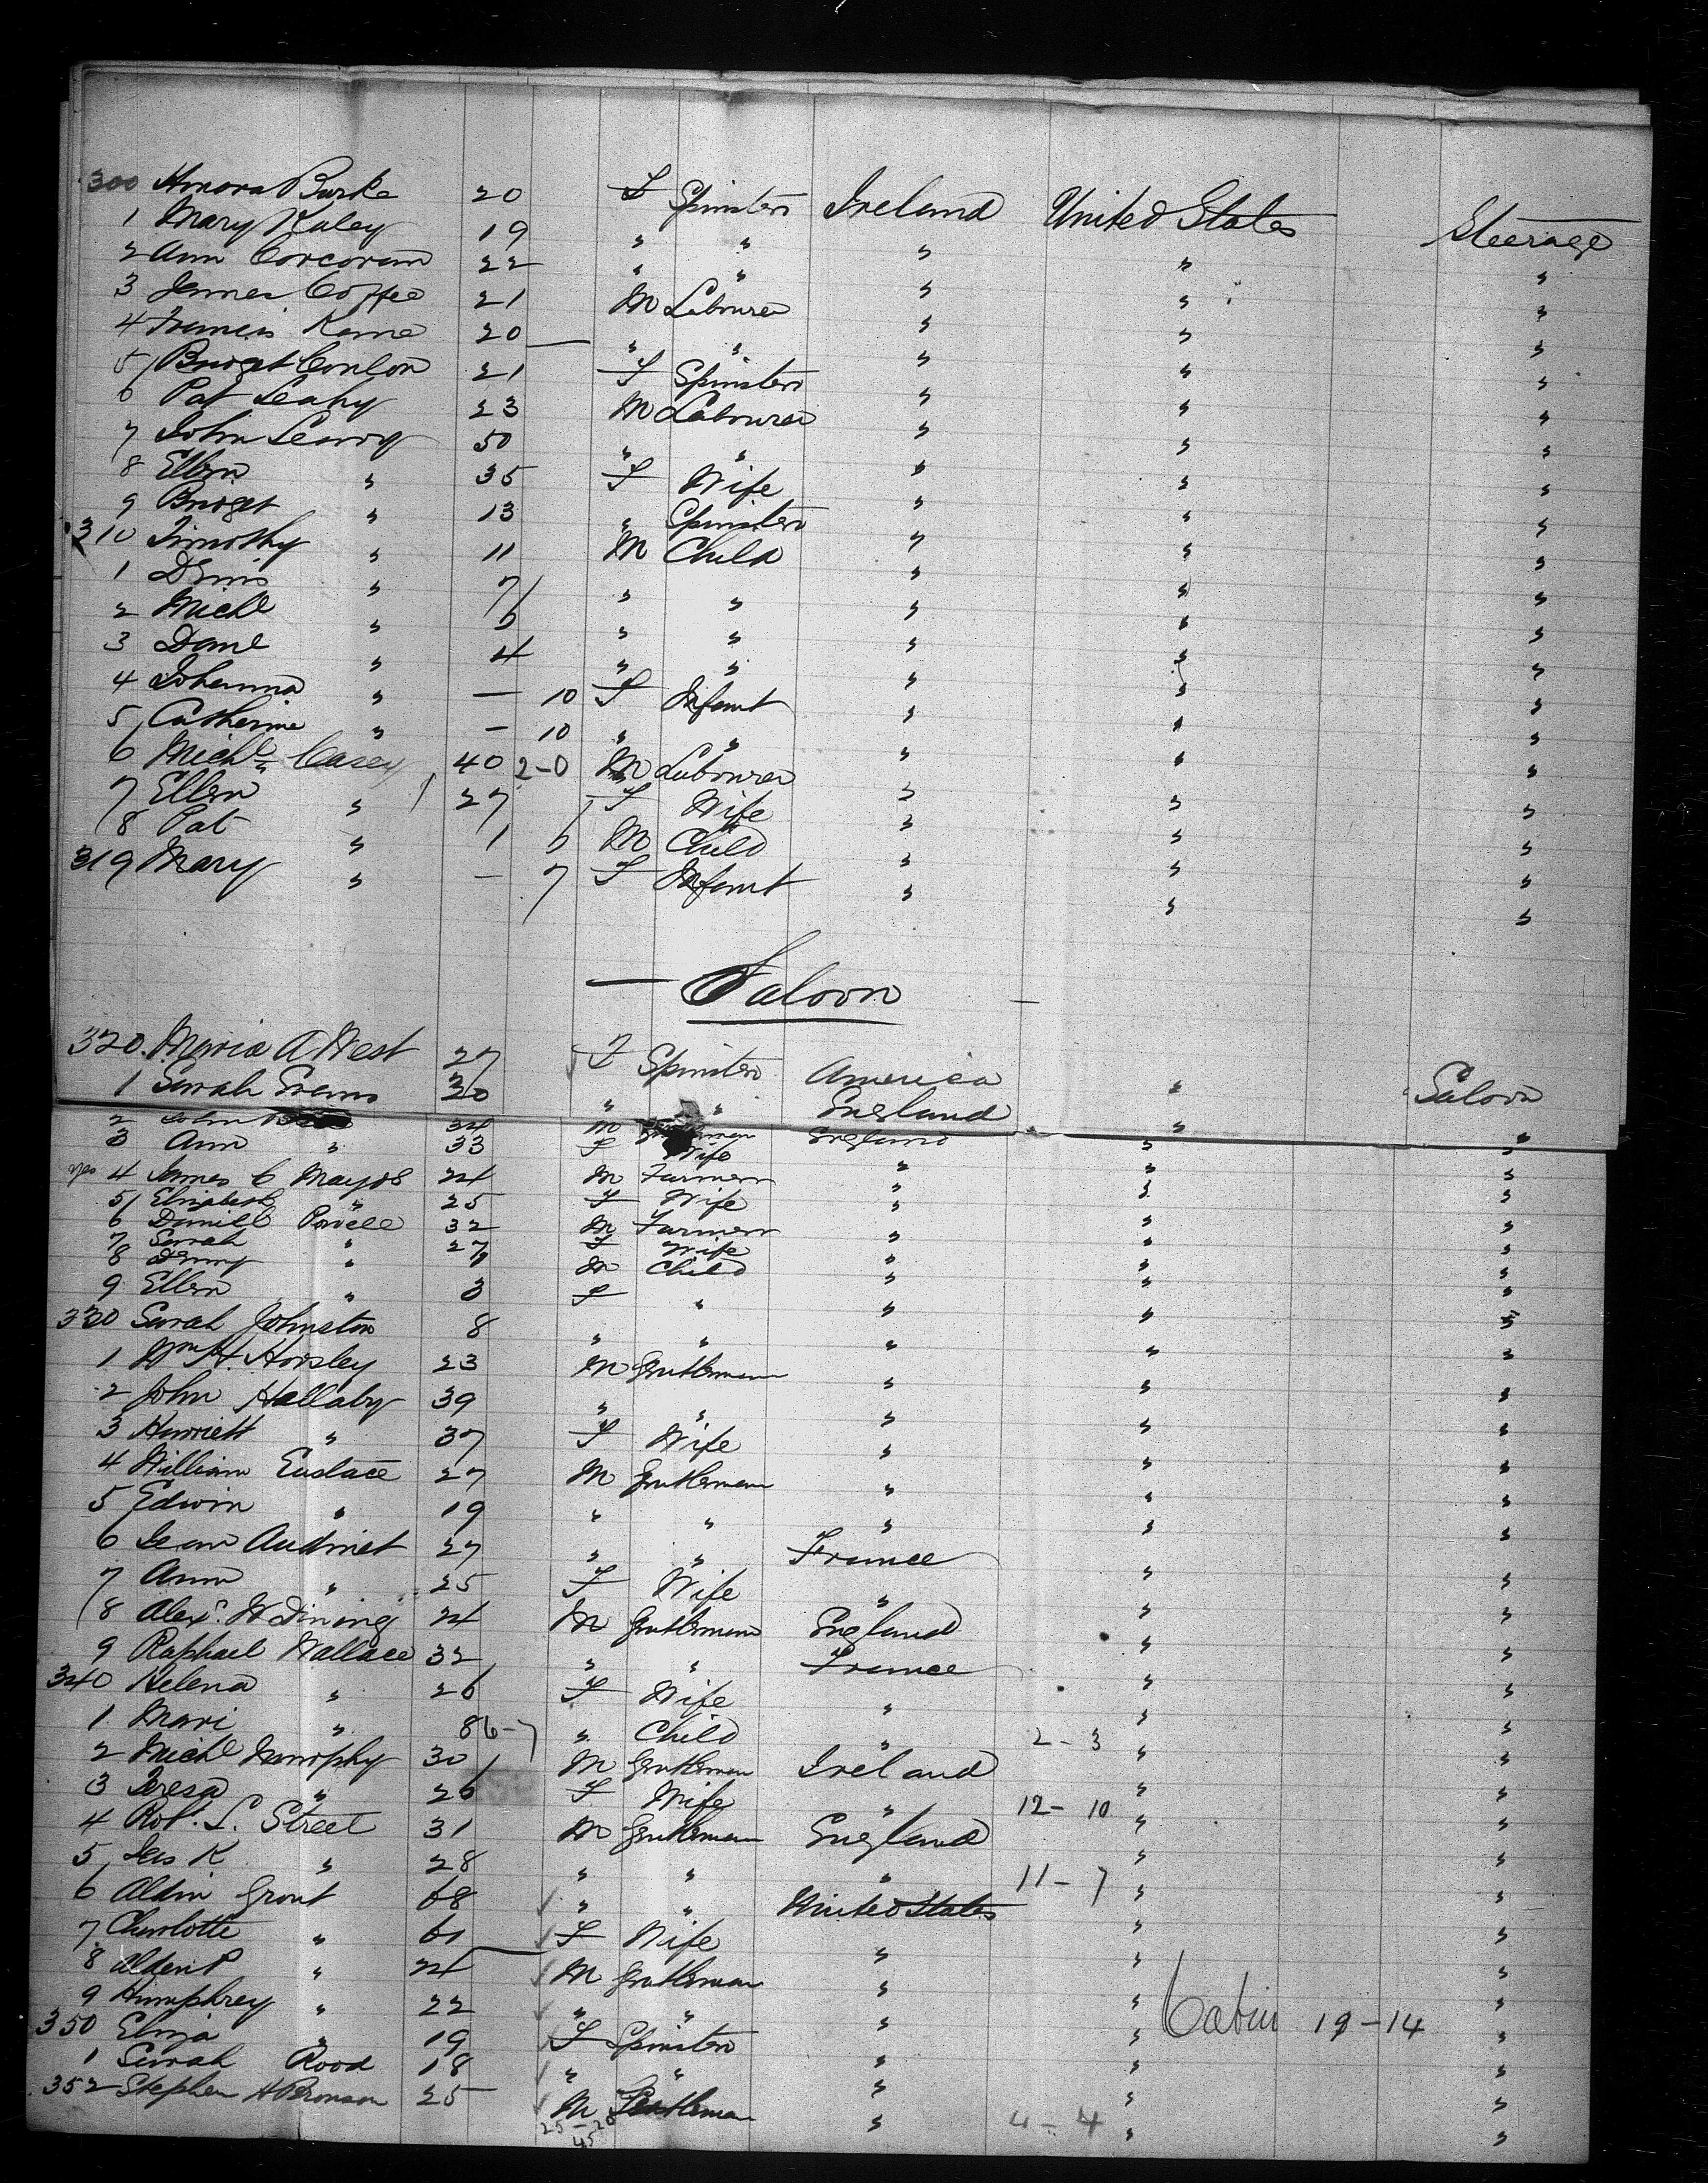 300 Honora Burke 20 F Spinster Ireland United States Steerage
1 Mary Kaley 19 " " " " "
2 Ann Corcoran 22 " " " " "
3 James Coffee 21 M Labourer " " "
4 Francis Kane 20 " " " " "
5 Bridget Conlon 21 F Spinster " " "
6 Pat Leahy 23 M Labourer " " "
7 John 50 " " " " "
8 Ellen " 35 F Wife " " "
9 Bridget " 13 " Spinster " " "
310 Timothy " 11 M Child " " "
1 Denis " 7 " " " " "
2 Michl " 6 " " " " "
3 Danl " 4 " " " " "
4 Johanna " — 10 F Infant " " "
5 Catherine " — 10 " " " " "
6 Michl Casey 40 2-0 M Labourer " " "
7 Ellen " 27 F Wife " " "
8 Pat " 1 6 M Child " " "
319 Mary " — 7 F Infant " " "
— Saloon —
320. Maria A West 27 F Spinster America " Saloon
1 Sarah Evans 20 " " England " "
2 John 34 M England " "
3 Ann " 33 F Wife " " "
yes 4 James C Mayor 24 M Farmer " " "
5 Elizabeth " 25 F Wife " " "
6 Daniell Powell 32 M Farmer " " "
7 Sarah " 27 F Wife " " "
8 " M Child " " "
9 Ellen " 3 F " " " "
330 Sarah Johnston 8 " " " " "
1 Wm H. Horsley 23 M Gentleman " " "
2 John Hallaby 39 " " " " "
3 Harriett " 37 F Wife " " "
4 William Eustace 27 M Gentleman " " "
5 Edwin " 19 " " " " "
6 Jean Audinet 27 " " France " "
7 Ann " 25 F Wife " " "
8 Alexr. W Dining 24 M Gentleman England " "
9 Raphael Wallace 32 " " France " "
340 Helena " 26 F Wife " " "
1 Mari " 8 6-7 " Child " 2-3 " "
2 Michl Murophy 30 M Gentleman Ireland " "
3 Teresa " 26 F Wife " 12-10 " "
4 Robt. L. Street 31 M Gentleman England " "
5 Jas K " 28 " " " 11-7 " "
6 Aldin Grout 68 " " United States " "
7 Charlotte " 61 F Wife " " "
8 Alden P " 24 M Gentleman " " "
9 Humphrey " 22 " " " " Cabin 19-14 "
350 Eliza " 19 F Spinster " " "
1 Sarah Rood 18 " " " " "
352 Stephen H Bronson 25 M Gentleman " 4-4 " "
25-20
45